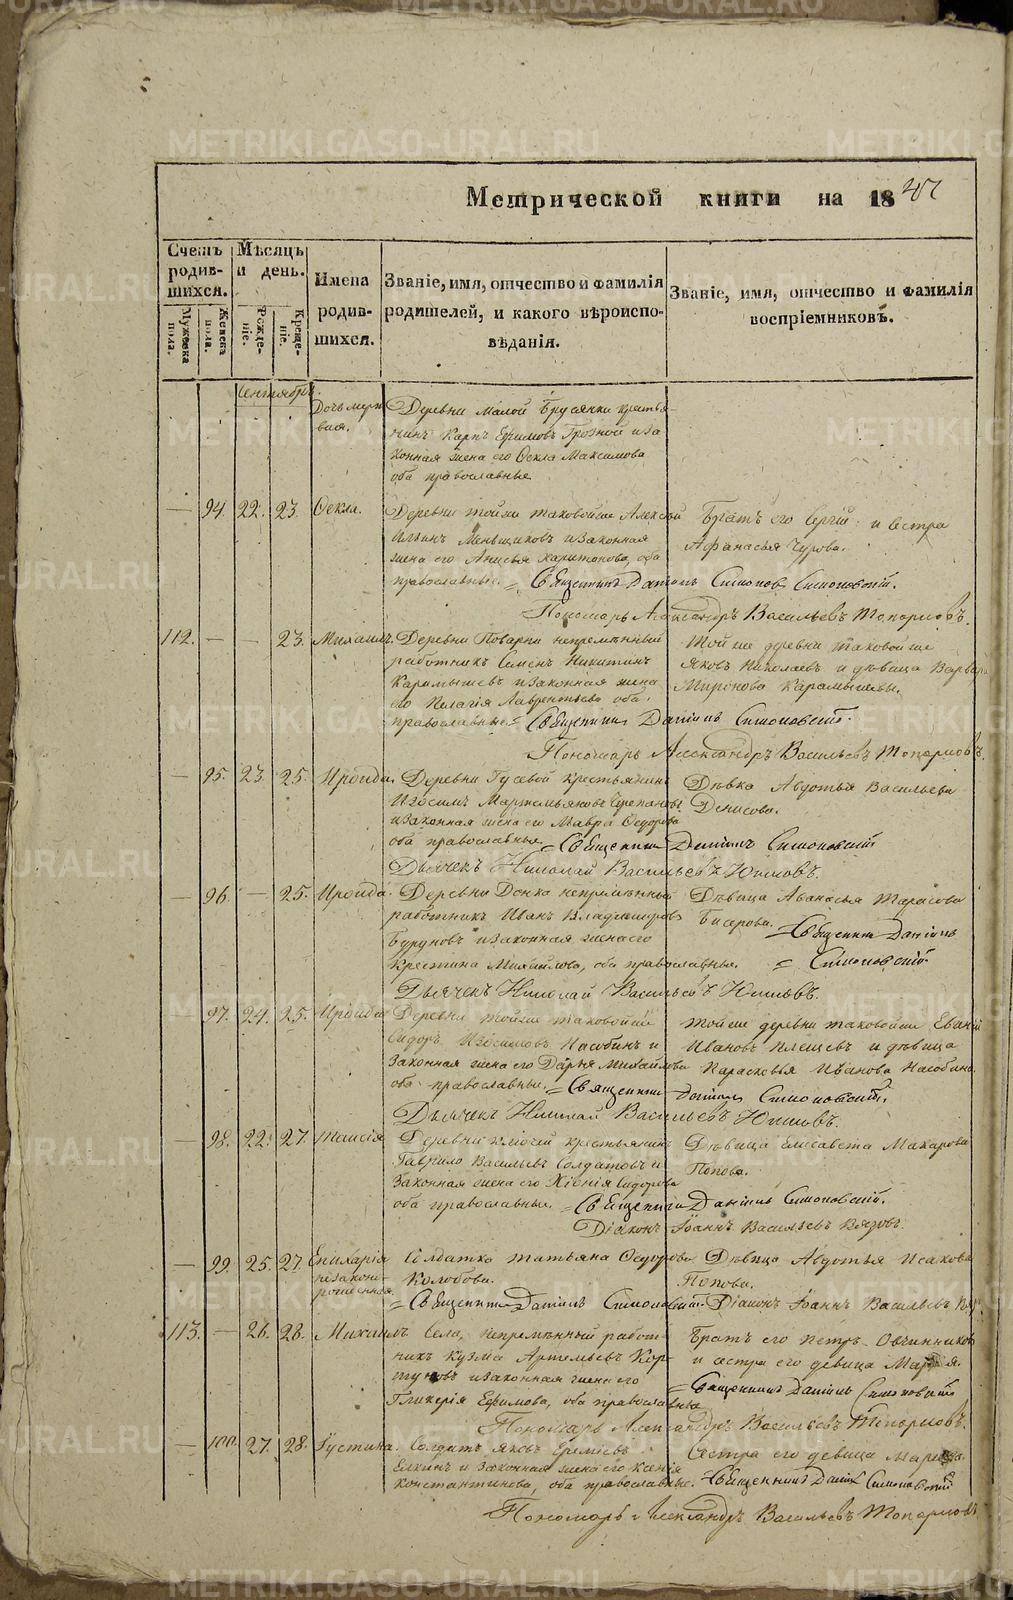 METRIKI.GASO-URAL.RU
Метрической книги на 1847
Счетъ родив-шихся.
Мужеска пола.
Женска пола.
Мѣсяцъ и день.
Рожде-ніе.
Креще-ніе.
Имена родив-шихся.
Званіе, имя, отчество и фамилія родителей, и какого вѣроиспо-вѣданія.
Званіе, имя, отчество и фамилія воспріемниковъ.
Сентябрь.
Дочь мерт-
вая.
Деревни Малой Брусянки крестья-
нинъ Карпъ Ефимовъ Грозной и за
конная жена его Фекла Максимова
оба православные
— 94. 22. 23. Фекла.
Деревни тойже таковойже Алексѣй
Ильинъ Меньщиковъ и законная
жена его Анисья Харитонова, оба
православные.
Братъ его Сергій и сестра
Афанасья Чурова.
Священникъ Даніилъ Симоновъ Симоновскій.
Пономарь Александръ Васильевъ Топорковъ.
112. — — 23. Михаилъ.
Деревни Поварни непремѣнный
работникъ Семенъ Никитинъ
Карамышевъ и законная жена
его Пелагія Лаврентьева оба
православные.
Той же деревни таковой же
Яковъ Николаевъ и дѣвица Варвара
Миронова Карамышевы.
Священникъ Даніилъ Симоновскій.
Пономарь Александръ Васильевъ Топорковъ.
— 95. 23. 25. Ираида.
Деревни Гусевой крестьянинъ
Изосимъ Мартемьяновъ Черепановъ
и законная жена его Мавра Федорова
оба православные.
Дѣвка Авдотья Васильева
Денисова.
Священникъ Даніилъ Симоновскій
Дьячекъ Николай Васильевъ
— 96. — 25. Ираида.
Деревни непремѣнный
работникъ Иванъ Владимировъ
Буруновъ и законная жена его
Крестина Михайлова, оба православные.
Дѣвица Афанасья Тарасова
Бисерова.
Священникъ Даніилъ
Симоновскій.
Дьячекъ Николай Васильевъ
97. 24. 25. Ираида
Деревни тойже таковойже
Сидоръ Изосимовъ Насобинъ и
Законная жена его Дарья Михайлова
оба православные.
Той же деревни таковой же
Ивановъ Клещевъ и дѣвица
Парасковья Иванова Насобина
Священникъ Даніилъ Симоновскій.
Дьячекъ Николай Васильевъ
— 98. 22. 27. Таисія
Деревни Ключей крестьянинъ
Гаврило Васильевъ Солдатовъ и
Законная жена его Ксенія Сидорова
оба православные.
Дѣвица Елисавета Макарова
Попова.
Священникъ Даніилъ Симоновскій.
Діаконъ Іоаннъ Васильевъ Вязовъ.
— 99. 25. 27. Епихарія
незакон-
рожденная.
Солдатка Татьяна Федорова
Колобова.
Дѣвица Авдотья Исакова
Попова.
Священникъ Даніилъ Симоновскій. Діаконъ Іоаннъ Васильевъ
113. — 26. 28. Михаилъ
Села, непремѣнный работ-
никъ Кузма Артемьевъ Кор-
туновъ и законная жена его
Гликерія Ефимова, оба православные
Братъ его Петръ Овчинниковъ
и сестра его девица Марія.
Священникъ Даніилъ Симоновскій
Пономарь Александръ Васильевъ Топорковъ.
— 100. 27. 28. Іустина.
Солдатъ Яковъ Еремѣевъ
Елкинъ и Законная жена его Ксенія
Константинова, оба православные.
Сестра его девица Марина.
Священникъ Даніилъ Симоновскій
Пономарь Александръ Васильевъ Топорковъ